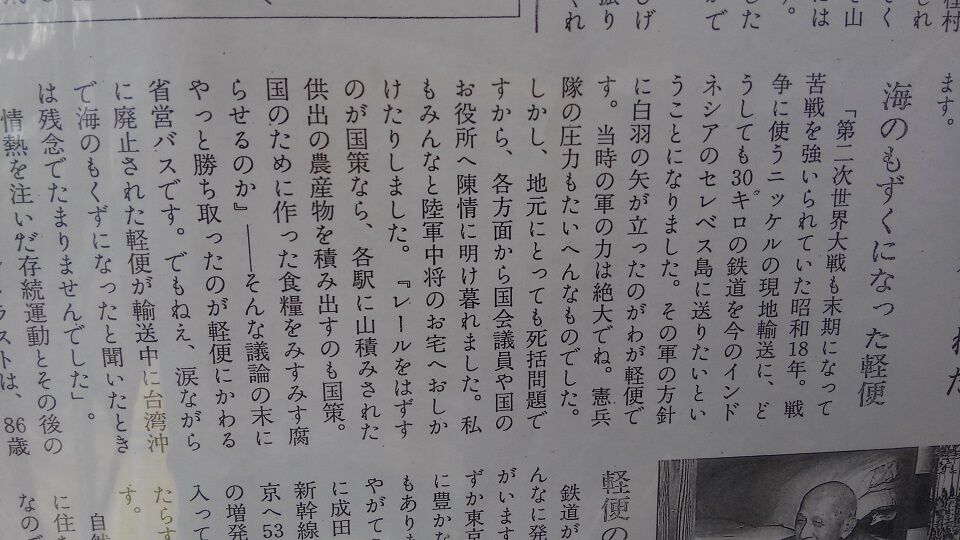 した
かで
しげ
振り
くれ
ます。
海のもずくになった軽便
「第二次世界大戦も末期になって
苦戦を強いられていた昭和18年。戦
争に使うニッケルの現地輸送に、ど
うしても30キロの鉄道を今のインド
ネシアのセレベス島に送りたいとい
うことになりました。その軍の方針
に白羽の矢が立ったのがわが軽便で
す。当時の軍の力は絶大でね。憲兵
隊の圧力もたいへんなものでした。
しかし、地元にとっても死括問題で
すから、各方面から国会議員や国の
お役所へ陳情に明け暮れました。私
もみんなと陸軍中将のお宅へおしか
けたりしました。『レールをはずす
のが国策なら、各駅に山積みされた
供出の農産物を積み出すのも国策。
国のために作った食糧をみすみす腐
らせるのか』――そんな議論の末に
やっと勝ち取ったのが軽便にかわる
省営バスです。でもねえ、涙ながら
に廃止された軽便が輸送中に台湾沖
で海のもくずになったと聞いたとき
は残念でたまりませんでした」。
情熱を注いだ存続運動とその後の
ラストは、86歳
軽便の
鉄道が
んなに発
がいます
ずか東京
に豊かな
もあり
やがて
に成田
新幹線
京へ53
の増発
入って
たらす
す。
自然
に住
なので